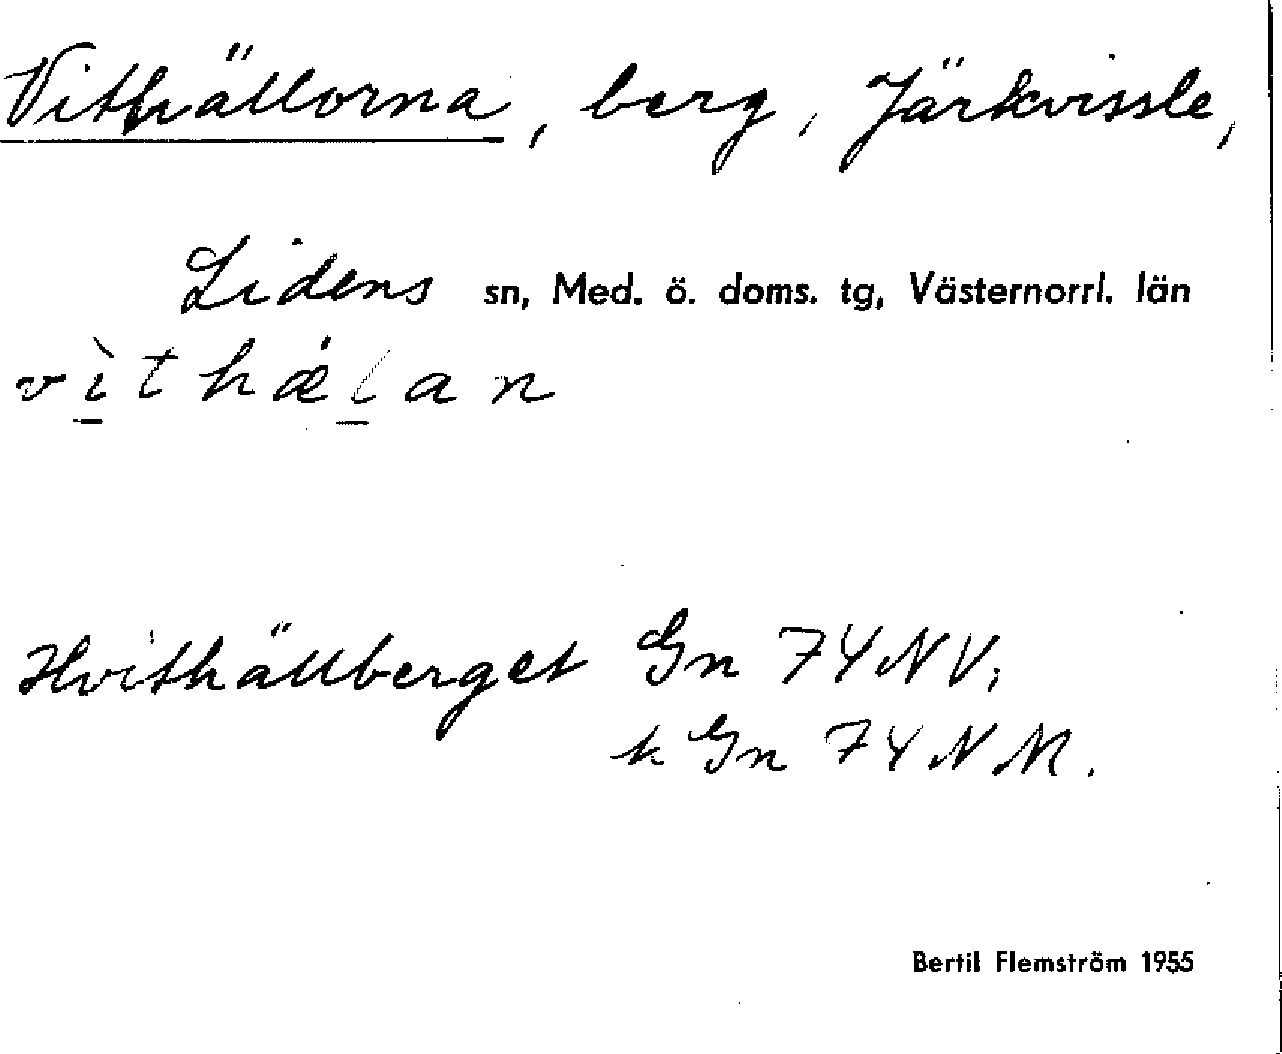 Vithällorna, berg, Järkvissle,
Lidens sn, Med. ö. doms. tg, Västernorrl. län
vìthǽlan
Hvithällberget Gn 74NV;
k Gn 74NM.
Bertil Flemström 1955